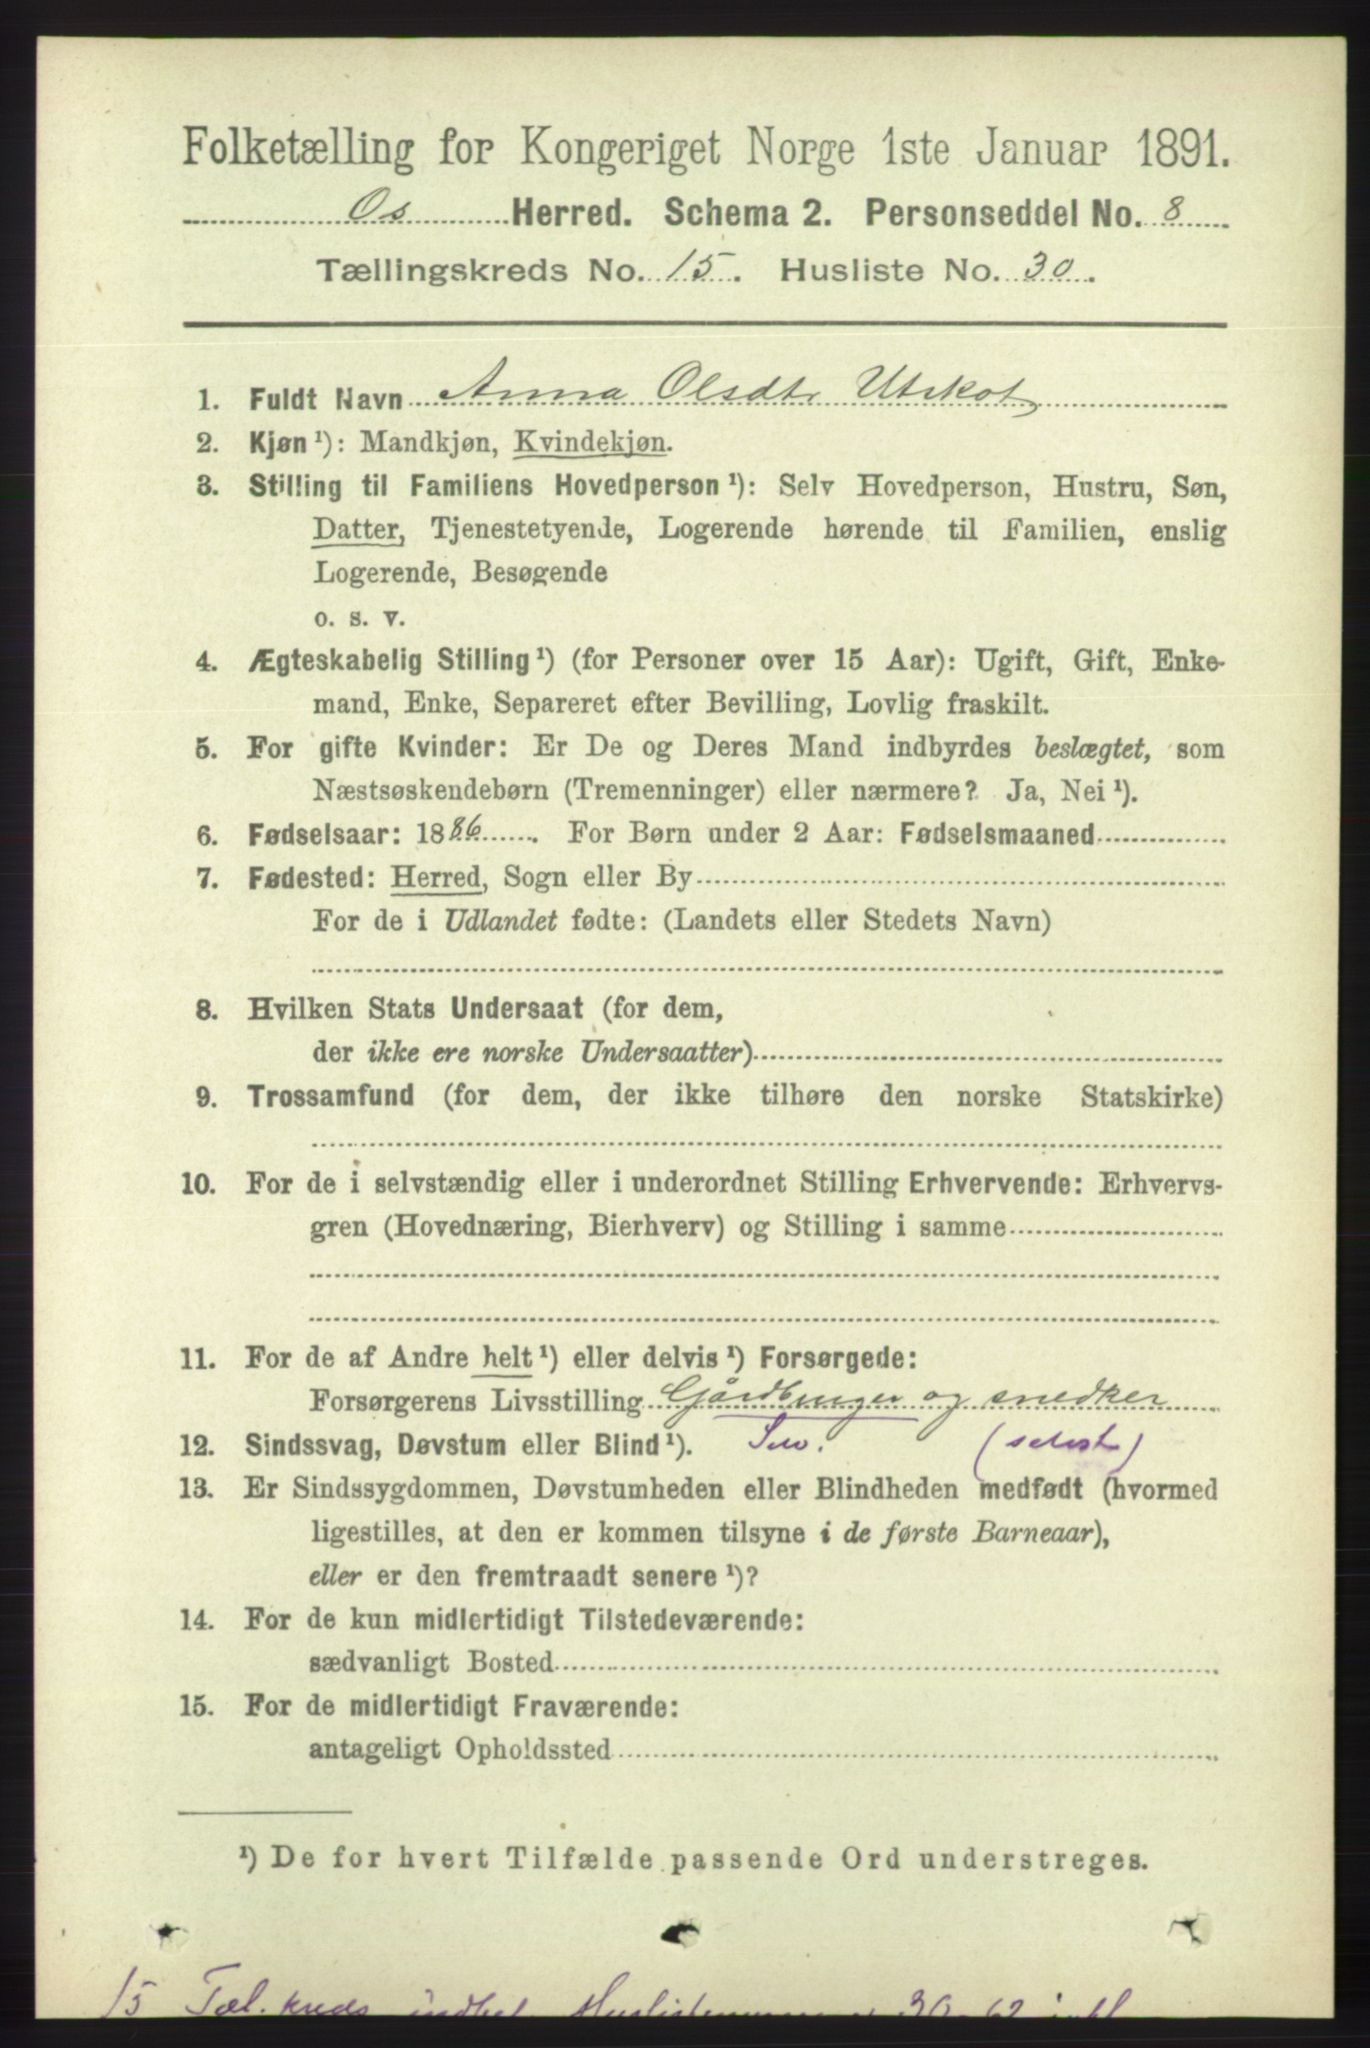 Folketælling for Kongeriget Norge 1ste Januar 1891.
Os Herred. Schema 2. Personseddel No. 8
Tællingskreds No. 15. Husliste No. 30.
1. Fuldt Navn Anna Olsdtr Utskot
2. Kjøn¹): Mandkjøn, Kvindekjøn.
3. Stilling til Familiens Hovedperson¹): Selv Hovedperson, Hustru, Søn,
Datter, Tjenestetyende, Logerende hørende til Familien, enslig
Logerende, Besøgende
o. s. v.
4. Ægteskabelig Stilling¹) (for Personer over 15 Aar): Ugift, Gift, Enke-
mand, Enke, Separeret efter Bevilling, Lovlig fraskilt.
5. For gifte Kvinder: Er De og Deres Mand indbyrdes beslægtet, som
Næstsøskendebørn (Tremenninger) eller nærmere? Ja, Nei¹).
6. Fødselsaar: 1886. For Børn under 2 Aar: Fødselsmaaned
7. Fødested: Herred, Sogn eller By
For de i Udlandet fødte: (Landets eller Stedets Navn)
8. Hvilken Stats Undersaat (for dem,
der ikke ere norske Undersaatter)
9. Trossamfund (for dem, der ikke tilhøre den norske Statskirke)
10. For de i selvstændig eller i underordnet Stilling Erhvervende: Erhvervs-
gren (Hovednæring, Bierhverv) og Stilling i samme
11. For de af Andre helt¹) eller delvis¹) Forsørgede:
Forsørgerens Livsstilling Gårdbruger og snedker
12. Sindssvag, Døvstum eller Blind¹).
13. Er Sindssygdommen, Døvstumheden eller Blindheden medfødt (hvormed
ligestilles, at den er kommen tilsyne i de første Barneaar),
eller er den fremtraadt senere¹)?
14. For de kun midlertidigt Tilstedeværende:
sædvanligt Bosted
15. For de midlertidigt Fraværende:
antageligt Opholdssted
¹) De for hvert Tilfælde passende Ord understreges.
15 Tæl. kreds 30-62